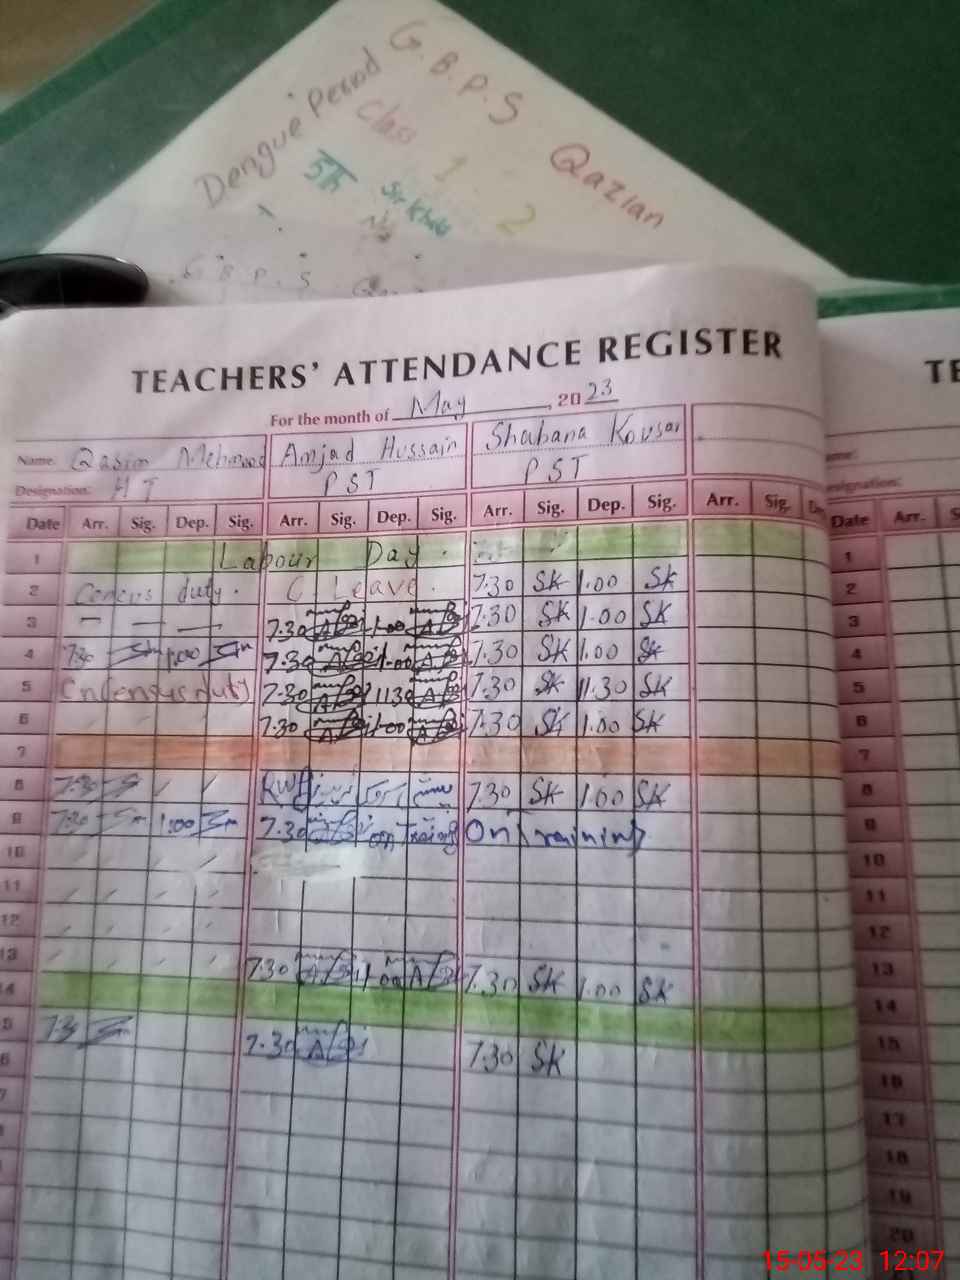 G.B.P.S Qazian
Dengue Period
Class 1 2
5th Sir
G B P S
TEACHERS' ATTENDANCE REGISTER
For the month of May, 2023
Name: Qasim Mehmood Amjad Hussain Shabana Kousar
Designation: HT PST PST
Date Arr. Sig. Dep. Sig. Arr. Sig. Dep. Sig. Arr. Sig. Dep. Sig. Arr. Sig.
1 Labour Day.
2 Cencus duty. C Leave. 7.30 SK 1.00 SK
3 — — — 7.30 1.00 7.30 SK 1.00 SK
4 7.30 1.00 7.30 1.00 7.30 SK 1.00 SK
5 Cndensus duty 7.30 11.30 7.30 SK 11.30 SK
6 7.30 1.00 7.30 SK 1.00 SK
7
8 7.30 7.30 SK 1.00 SK
9 7.30 1.00 7.30 on Training On Training
10
11
12
13 7.30 1.00 7.30 SK 1.00 SK
14
15 7.3 7.30 7.30 SK
TE
Name:
Designation:
Date Arr.
1
2
3
4
5
6
7
8
9
10
11
12
13
14
15
16
17
18
19
20
15-05-23 12:07